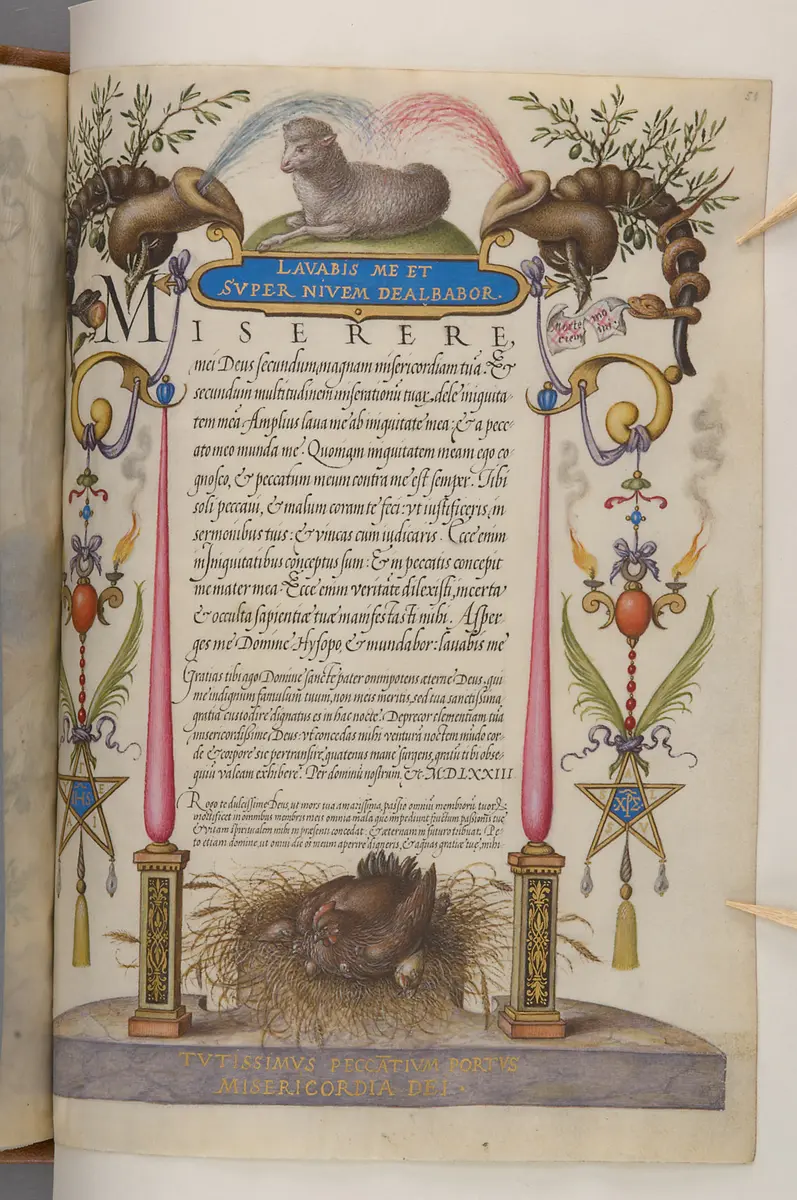 51
LAVABIS ME ET
SVPER NIVEM DEALBABOR.
MISERERE,
mei Deus secundum magnam misericordiam tuā. Et
secundum multitudinem miserationū tuar, dele iniquita-
tem meā. Amplius laua me ab iniquitate mea: & a pecc-
ato meo munda me. Quoniam iniquitatem meam ego co-
gnosco, & peccatum meum contra me est semper. Tibi
soli peccaui, & malum coram te feci: vt iustificeris in
sermonibus tuis: & vincas cum iudicaris. Ecce enim
in Iniquitatibus conceptus sum: & in peccatis concepit
me mater mea. Ecce enim veritāte dilexisti, incerta
& occulta sapientiæ tuæ manifestasti mihi. Asper-
ges me Domine Hysopo, & mundabor: lauabis me
Gratias tibi ago Domine sancte pater omnipotens æterne Deus, qui
me indignum famulum tuum, non meis meritis, sed tua sanctissima
gratia custodire dignatus es in hac nocte. Deprecor clementiam tuā
misericordissime Deus vt concedas mihi venturā noctem mūdo cor-
de & corpore sic pertransire, quatenus mane surgens, gratū tibi obse-
quiū valeam exhibere. Per dominū nostrum, Et. M.D.LXXIII
Rogo te dulcissime Deus, ut mors tua amarissima, passio omniū membrorū tuorū
mortificet in omnibus membris meis omnia mala que impediunt fructum passionis tuę
& vitam spiritualem mihi in præsenti concedat, & æternam in futuro tribuat. Pe-
to etiam domine, ut omni die os meum aperire digneris, & aquas gratiæ tuę mihi
IHS
XPS
TVTISSIMVS PECCĀTIVM PORTVS
MISERICORDIA DEI.